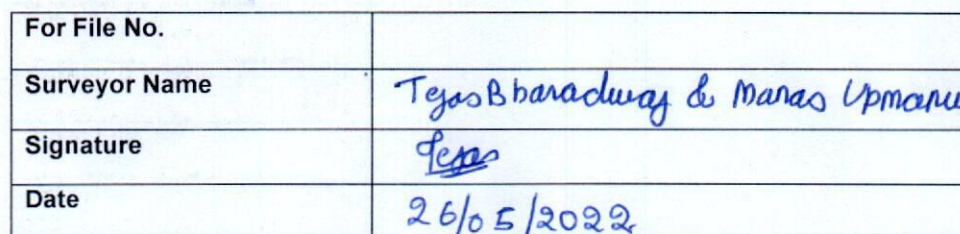 For File No.
Surveyor Name Tejas Bharadwaj & Manas Upmanu
Signature Tejas
Date 26/05/2022